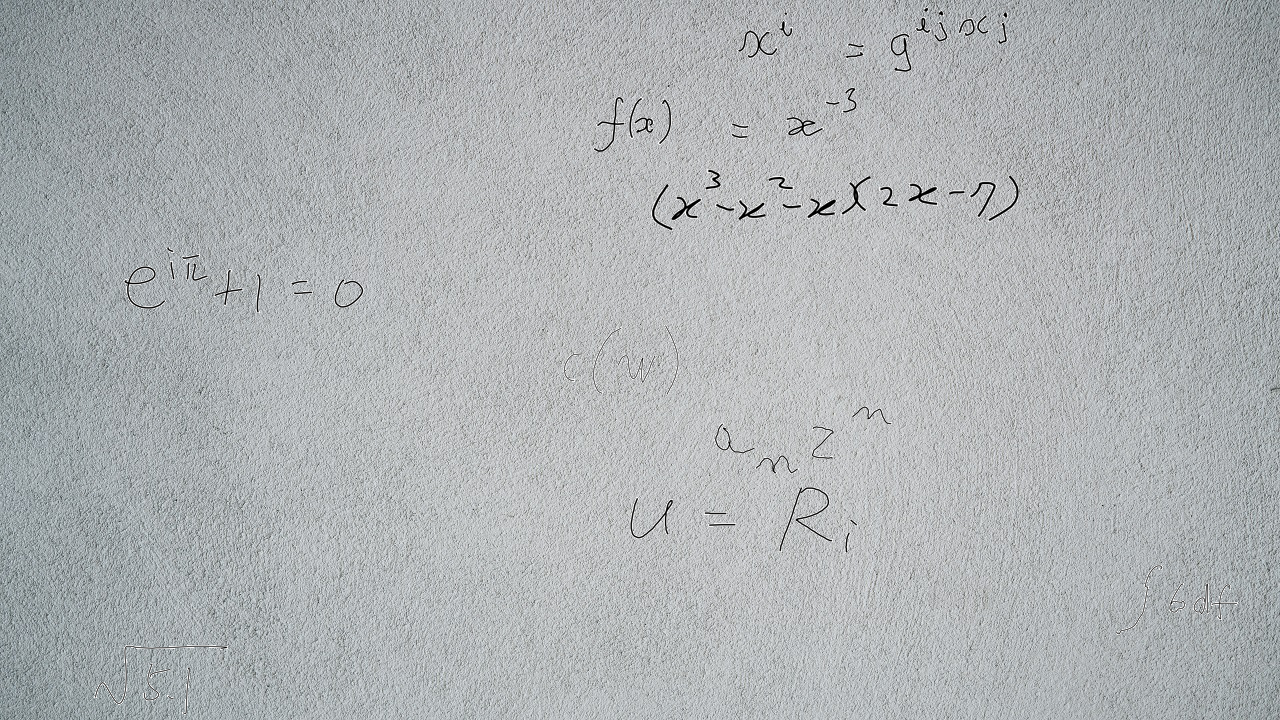 xⁱ = gⁱʲˣʲ
f(x) = x⁻³
(x³-x²-x)(2x-7)
e^{iπ}+1=0
c(w)
aₙzⁿ
u = Rᵢ
∫6df
√5.1